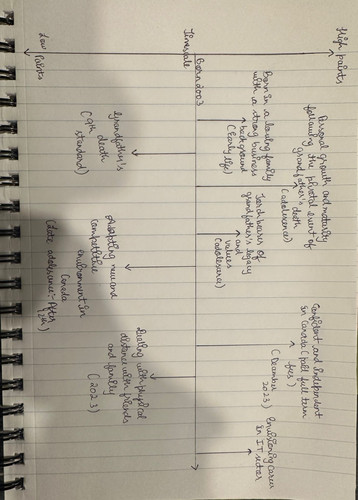 High points
Personal growth and maturity
following the pivotal event of
grandfather's death
(adolescence)
Confident and Independent
in Canada (paid full term
fees)
(December
2023)
Born in a loving family
with in a strong business
background
(Early life)
Torch bearer of
grandfather's legacy
and
values
(adolescence)
Envisioning Career
in IT sector
Timescale
Born 2003
Grandfather's
death
(9th standard)
Adapting new and
competitive
environment in
Canada
(Late adolescence:- After
12th)
Dealing with physical
distance with friends
and family
(2023)
Low Points